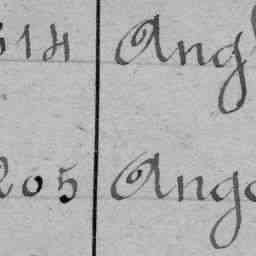 514 Ang
205 Ang